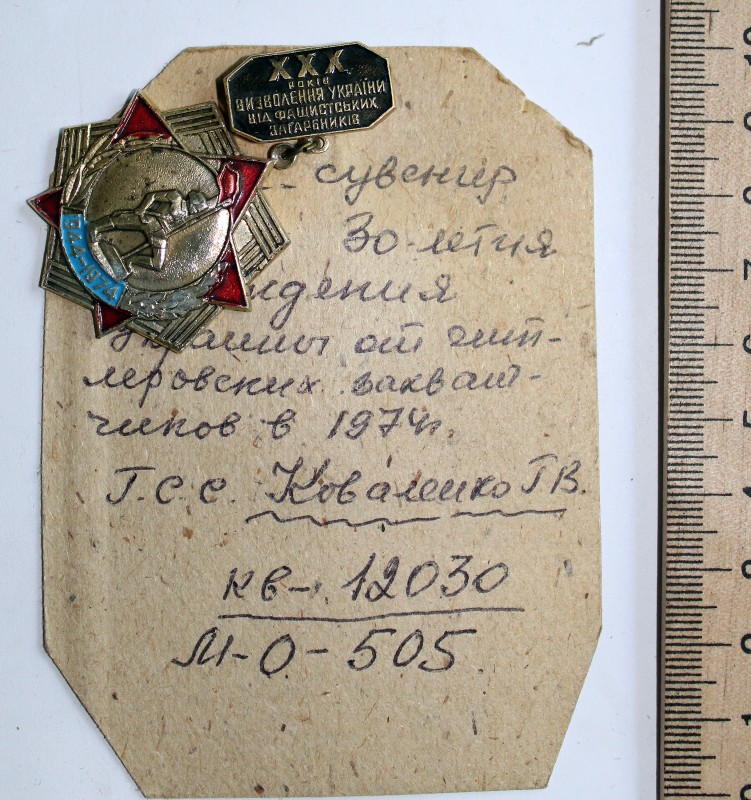 XXX
РОКІВ
ВИЗВОЛЕННЯ УКРАЇНИ
ВІД ФАШИСТСЬКИХ
ЗАГАРБНИКІВ
1944-1974
сувенир
30-летия
ждения
Украины от гит-
леровских захват-
чиков в 1974г.
Г.С.С. Коваленко Г В.
кв-12030
М-О-505.
10
9
8
7
6
5
4
3
2
1
0